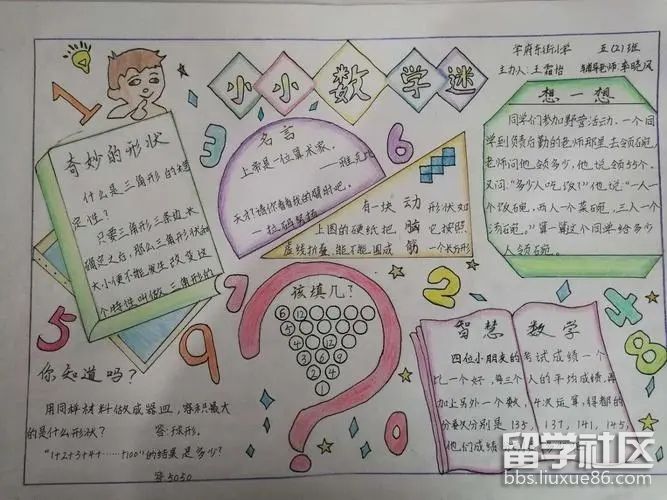 小小数学迷
学府东街小学 五(2)班
主办人:王霜怡 辅导老师:李晓风
奇妙的形状
什么是三角形的稳
定性?
只要三角形三条边长
确定之后,那么三角形状和
大小便不能发生改变,这
个特性叫做三角形的
名言
上帝是一位算术家.
—雅克比
3
6
1
5
9
7
2
4
8
有一块 动 形状如
上图的硬纸把 脑 它按照
虚线折叠,能不能围成 筋 一个长方形
想一想
同学们参加野营活动.一个同
学到负责后勤的老师那里去领碗.
老师问他领多少,他说领55个.
又问:"多少人吃饭?"他说:"一人一
个饭碗,两人一个菜碗,三人一个
汤碗."算一算这个同学给多少
人领碗.
该填几?
6 12
5
2 4
3 6 9
智慧数学
四位小朋友的考试成绩一个
比一个好,每三个人的平均成绩,再
加上另外一个数,4次运算,得都的
分数次分别是 135, 137, 141, 145,
他们成绩
你知道吗?
用同样材料做成器皿,容积最大
的是什么形状? 答:球形.
"1+2+3+4+……+100"的结果是多少?
答5050
留学社区
bbs.liuxue86.com